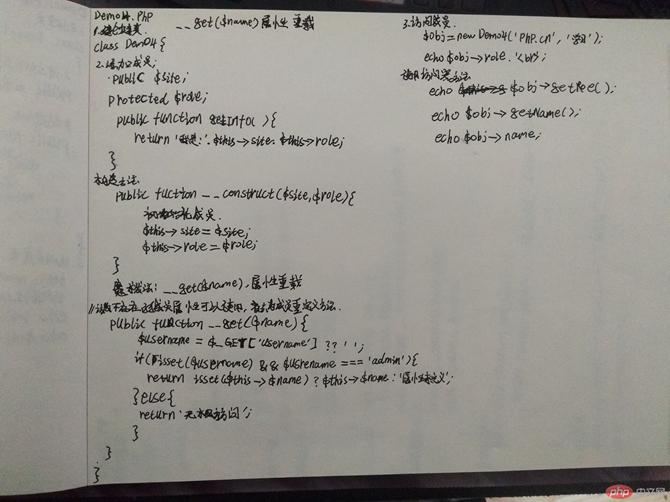 Demo4.php
__get($name)属性重载
1.创建类
class Demo4 {
2.添加成员;
public $site;
protected $role;
public function getInfo( ){
return '我是:'.$this->site.$this->role;
}
构造方法
public function __construct($site,$role){
初始化成员.
$this->site = $site;
$this->role = $role;
}
魔术方法: __get($name),属性重载
public function __get($name) {
$username = $_GET['username'] ?? '';
if( isset($username) && $usrename === 'admin'){
return isset($this->$name) ? $this->$name : '属性未定义';
} else {
return '无权访问';
}
}
}
3.访问成员.
$obj = new Demo4('PHP.cn', '');
echo $obj->role.'<br>';
调用访问器方法
echo $obj->getRole();
echo $obj->getName();
echo $obj->name;
php 中文网